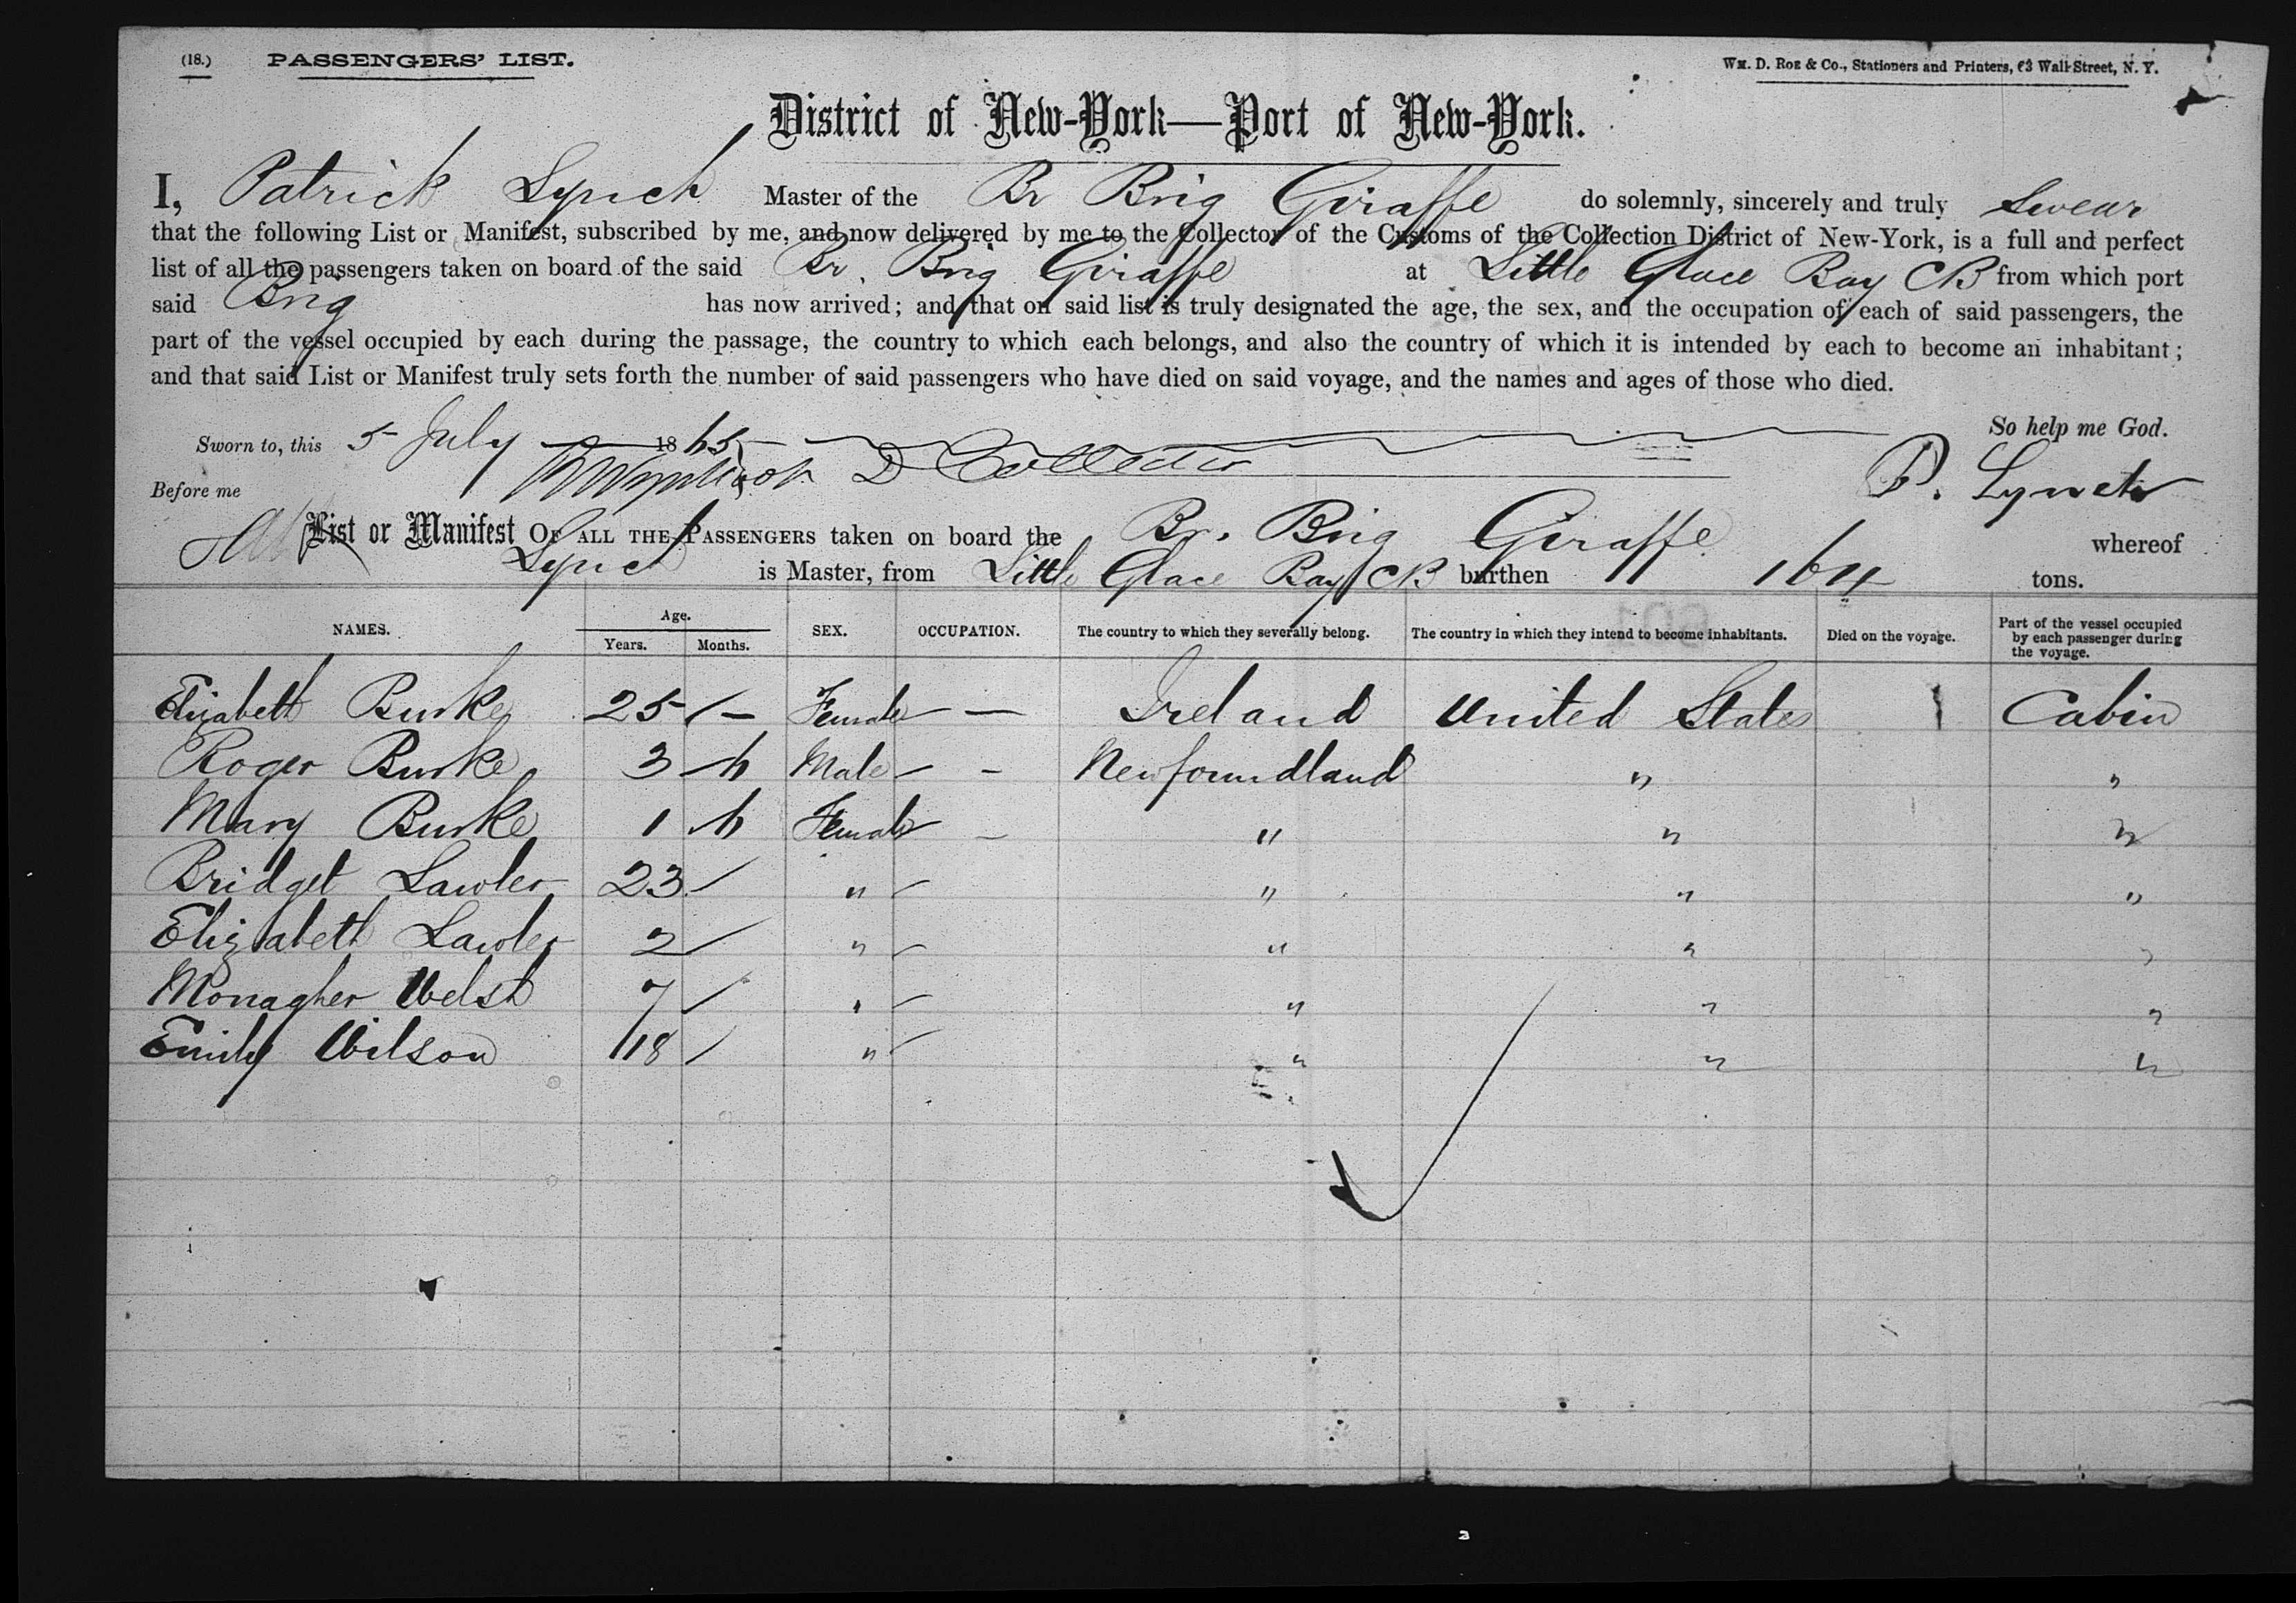 (18.) PASSENGERS' LIST.
Wm. D. Roe & Co., Stationers and Printers, 63 Wall Street, N. Y.
District of New-York—Port of New-York.
I, Patrick Lynch Master of the Br Brig Giraffe do solemnly, sincerely and truly Swear
that the following List or Manifest, subscribed by me, and now delivered by me to the Collector of the Customs of the Collection District of New-York, is a full and perfect
list of all the passengers taken on board of the said Br. Brig Giraffe at Little Glace Bay CB from which port
said Brig has now arrived; and that on said list is truly designated the age, the sex, and the occupation of each of said passengers, the
part of the vessel occupied by each during the passage, the country to which each belongs, and also the country of which it is intended by each to become an inhabitant;
and that said List or Manifest truly sets forth the number of said passengers who have died on said voyage, and the names and ages of those who died.
So help me God.
Sworn to, this 5 July 1865
Before me D Collector P. Lynch
List or Manifest OF ALL THE PASSENGERS taken on board the Br. Brig Giraffe whereof
Lynch is Master, from Little Glace Bay CB burthen 164 tons.
NAMES. Age. Years. Months. SEX. OCCUPATION. The country to which they severally belong. The country in which they intend to become inhabitants. Died on the voyage. Part of the vessel occupied by each passenger during the voyage.
Elizabeth Burke 25 – Female — Ireland United States Cabin
Roger Burke 3 6 Male – Newfoundland " "
Mary Burke 1 6 Female – " " "
Bridget Lawler 23 " " " "
Elizabeth Lawler 2 " " " "
Monagher Welsh 7 " " " "
Emily Wilson 18 " " " "